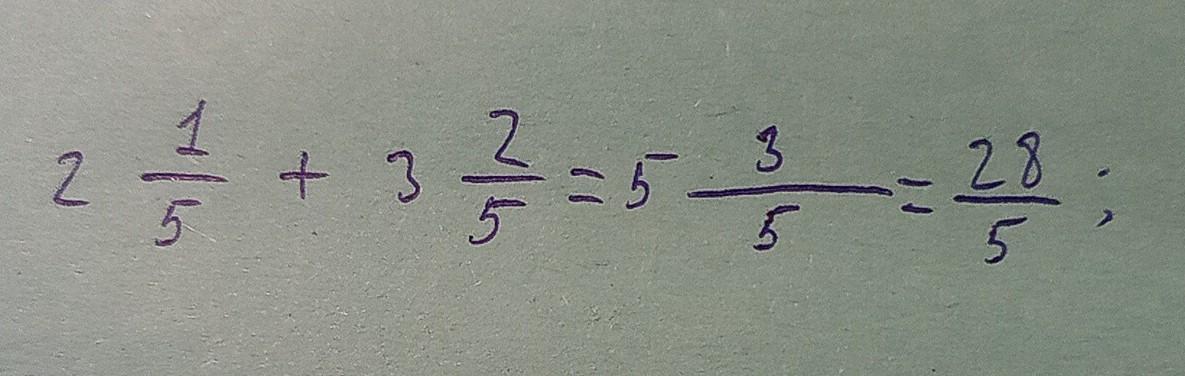 2 1/5 + 3 2/5 = 5 3/5 = 28/5 ;